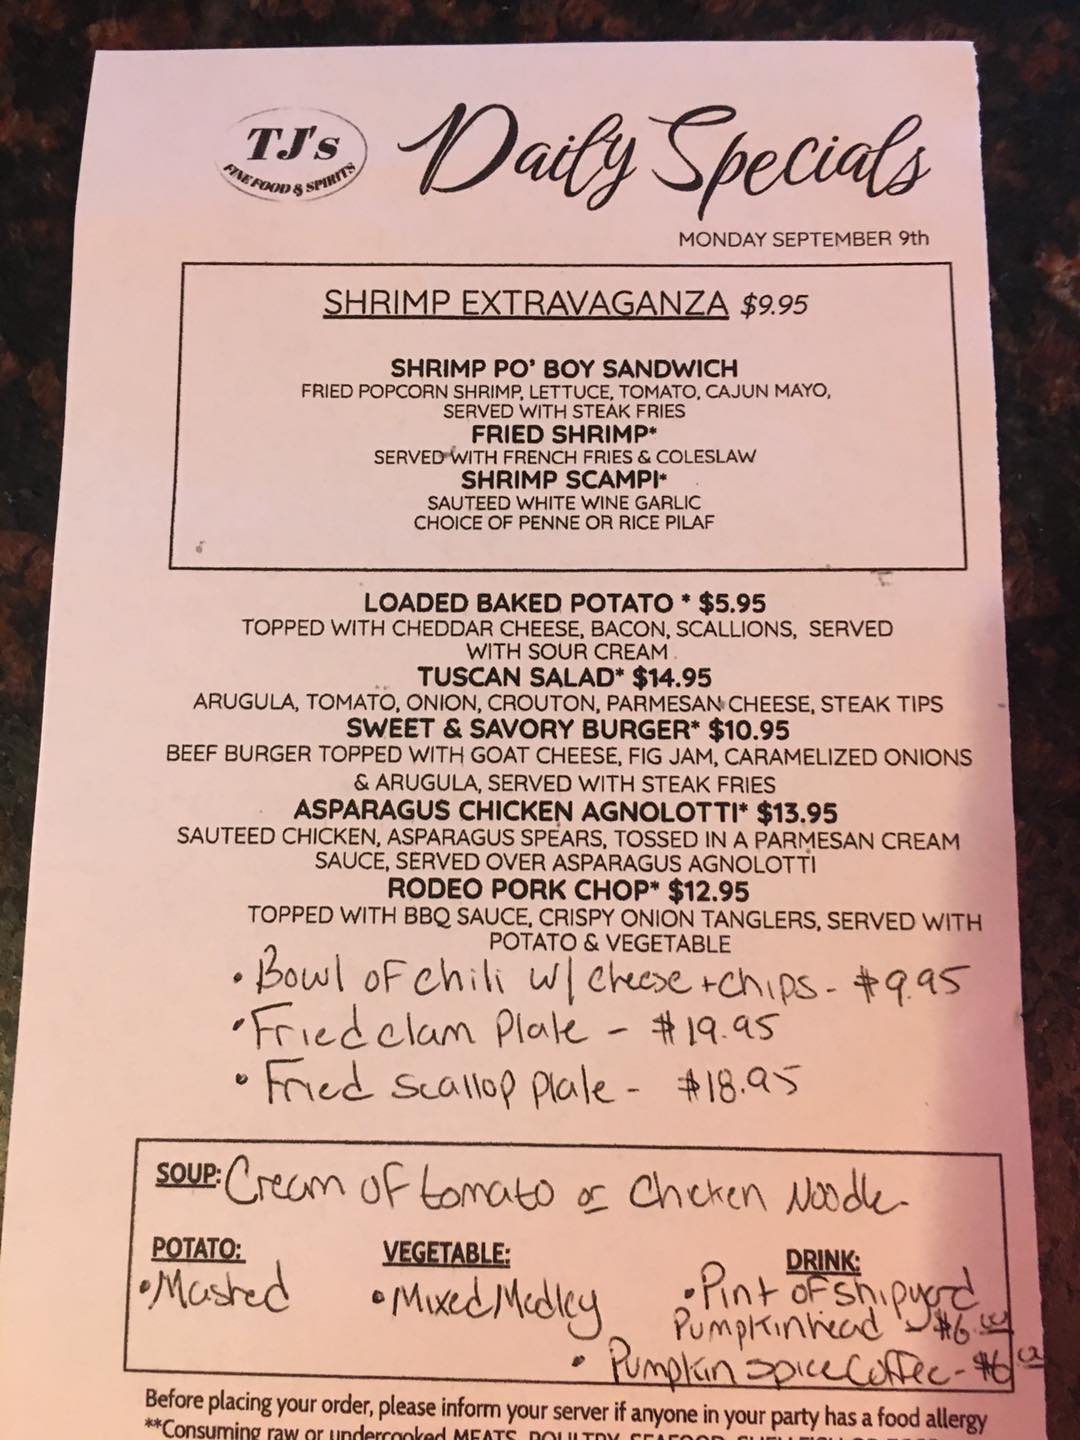 TJ's
FINE FOOD & SPIRITS
Daily Specials
MONDAY SEPTEMBER 9th
SHRIMP EXTRAVAGANZA $9.95
SHRIMP PO' BOY SANDWICH
FRIED POPCORN SHRIMP, LETTUCE, TOMATO, CAJUN MAYO,
SERVED WITH STEAK FRIES
FRIED SHRIMP*
SERVED WITH FRENCH FRIES & COLESLAW
SHRIMP SCAMPI*
SAUTEED WHITE WINE GARLIC
CHOICE OF PENNE OR RICE PILAF
LOADED BAKED POTATO * $5.95
TOPPED WITH CHEDDAR CHEESE, BACON, SCALLIONS, SERVED
WITH SOUR CREAM
TUSCAN SALAD* $14.95
ARUGULA, TOMATO, ONION, CROUTON, PARMESAN CHEESE, STEAK TIPS
SWEET & SAVORY BURGER* $10.95
BEEF BURGER TOPPED WITH GOAT CHEESE, FIG JAM, CARAMELIZED ONIONS
& ARUGULA, SERVED WITH STEAK FRIES
ASPARAGUS CHICKEN AGNOLOTTI* $13.95
SAUTEED CHICKEN, ASPARAGUS SPEARS, TOSSED IN A PARMESAN CREAM
SAUCE, SERVED OVER ASPARAGUS AGNOLOTTI
RODEO PORK CHOP* $12.95
TOPPED WITH BBQ SAUCE, CRISPY ONION TANGLERS, SERVED WITH
POTATO & VEGETABLE
• Bowl of chili w/ cheese + chips - $9.95
• Fried clam Plate - $19.95
• Fried scallop plate - $18.95
SOUP: Cream of tomato or Chicken Noodle
POTATO:
• Mashed
VEGETABLE:
• Mixed Medley
DRINK:
• Pint of shipyard
Pumpkinhead - $6
• Pumpkin spice Coffee - $6
Before placing your order, please inform your server if anyone in your party has a food allergy
**Consuming raw or undercooked MEATS, POULTRY, SEAFOOD,